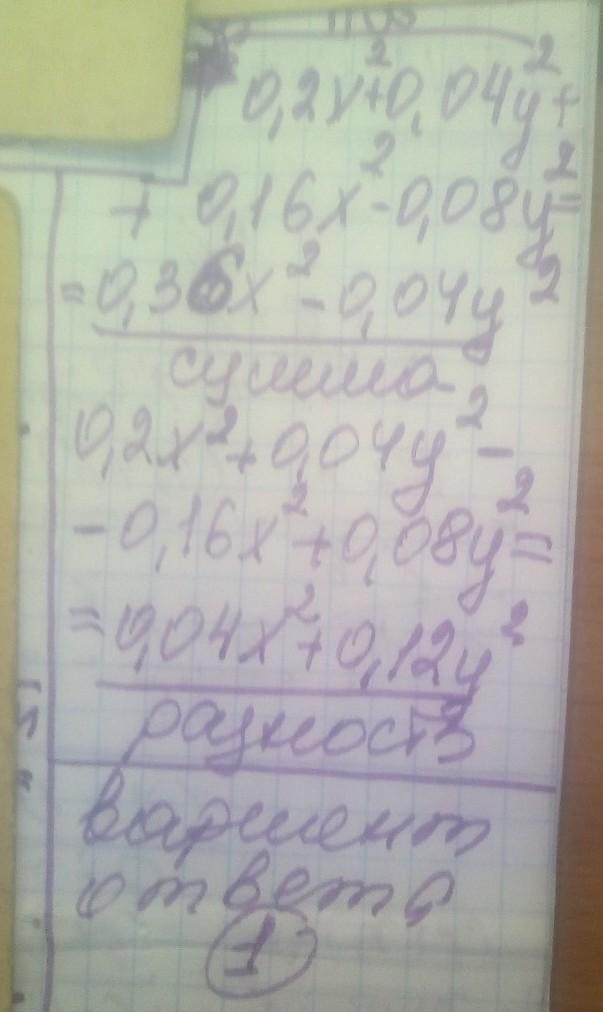 0,2x²+0,04y²+
+ 0,16x²-0,08y²=
=0,36x²-0,04y²
сумма
0,2x²+0,04y²-
-0,16x²+0,08y²=
=0,04x²+0,12y²
разность
вариант
ответа
1